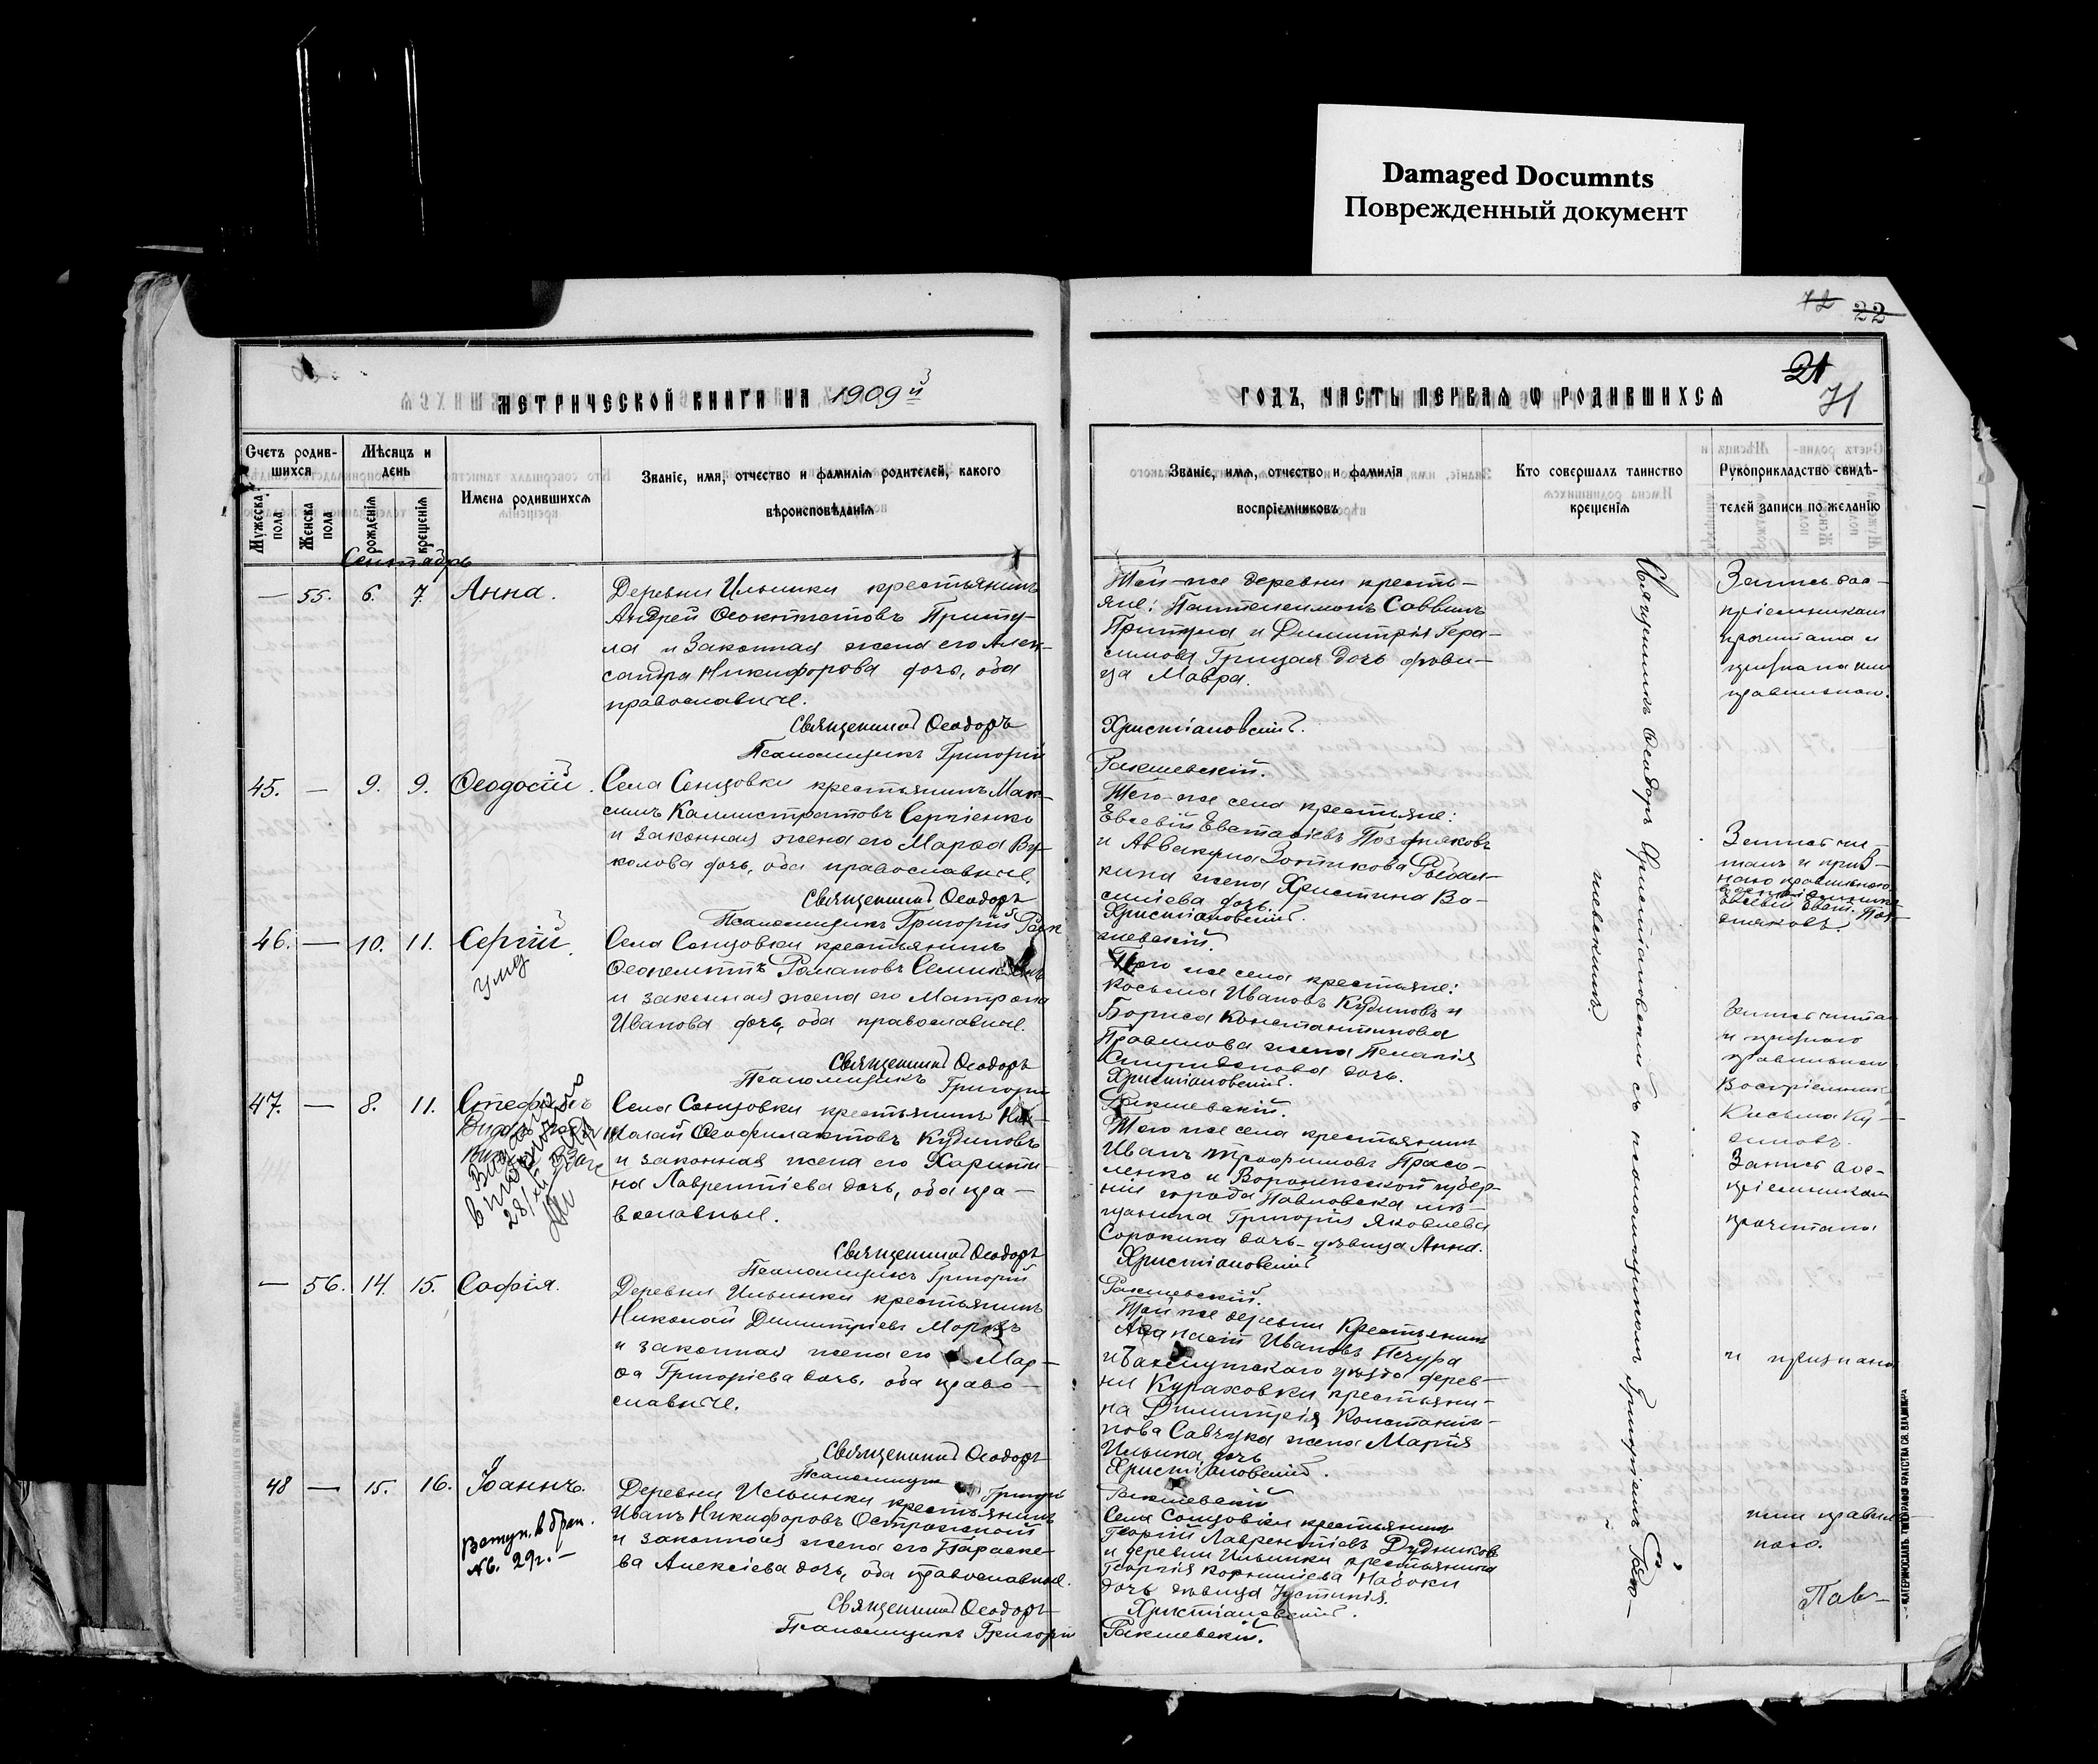 Damaged Documnts
Поврежденный документ
72 22
21
71
МЕТРИЧЕСКОЙ КНИГИ НА 1909й
ГОДЪ, ЧАСТЬ ПЕРВАЯ О РОДИВШИХСЯ
Счетъ родив-
шихся
Мужеска пола
Женска пола
Мѣсяцъ и
день
рожденія
крещенія
Имена родившихся
Званіе, имя, отчество и фамилія родителей, какого
вѣроисповѣданія
Званіе, имя, отчество и фамилія
воспріемниковъ
Кто совершалъ таинство
крещенія
Рукоприкладство свидѣ-
телей записи по желанію
Сентябрь
— 55. 6. 7. Анна.
Деревни Ильинки крестьянинъ
Андрей Ѳеоктистовъ Приту-
ла и законная жена его Алек-
сандра Никифорова дочь, оба
православные.
Священникъ Ѳеодоръ
Псаломщикъ Григорій
Той-же деревни кресть-
яне: Пантелеимонъ Саввинъ
Притула и Димитрія Гера-
симова Грицая дочь дѣви-
ца Мавра.
Христіановскій.
Ракшевскій.
Запись вос-
пріемникам
прочитана и
признана ими
правильною.
45. — 9. 9. Ѳеодосій.
Села Сонцовки крестьянинъ Мак-
симъ Каллистратовъ Сергіенко
и законная жена его Марѳа Ву-
колова дочь, оба православные.
Священникъ Ѳеодоръ
Псаломщикъ Григорій Рак
Того-же села крестьяне:
Евсевій Евстафіевъ Поздняковъ
и Аввакума Зотикова
кина жена Христина Ва-
силіева дочь.
Христіановскій.
шевскій.
46. — 10. 11. Сергій.
умер
Села Сонцовки крестьянинъ
Ѳеопемптъ Романовъ
и законная жена его Матрона
Иванова дочь, оба православные.
Священникъ Ѳеодоръ
Псаломщикъ Григорій
Того же села крестьяне:
Косьма Ивановъ Кудиновъ и
Бориса Константинова
жена Пелагія
Спиридонова дочь.
Христіановскій.
Ракшевскій.
Запись читал
и признаю
правильною
Воспріемник
Косьма Ку-
диновъ.
47. — 8. 11. Стефанъ
Села Сонцовки крестьянинъ Ни-
колай Ѳеофилактовъ Кудиновъ
и законная жена его Харити-
на Лаврентіева дочь, оба пра-
вославные.
Священникъ Ѳеодоръ
Псаломщикъ Григорій
Того же села крестьянинъ
Иванъ Трофимовъ Прасо-
ленко и Воронежской губер-
ніи города Павловска мѣ-
щанина Григорія Яковлева
Сорокина дочь-дѣвица Анна.
Христіановскій
Ракшевскій.
Запись вос-
пріемникам
прочитана
— 56. 14. 15. Софія.
Деревни Ильинки крестьянинъ
Николай Димитріевъ
и законная жена его Мар-
ѳа Григоріева дочь, оба право-
славные.
Священникъ Ѳеодоръ
Псаломщикъ Григорій
Той же деревни крестьянинъ
Аѳанасій Ивановъ
и Бахмутскаго уѣзда дерев-
ни Кураховки крестьяни-
на Димитрія Константи-
нова Савчука жена Марія
Ильина дочь
Христіановскій.
Ракшевскій
и признана
48 — 15. 16. Іоаннъ.
Вступ. в брак.
29г.-
Деревни Ильинки крестьянинъ
Иванъ Никифоровъ
и законная жена его Параске-
ва Алексіева дочь, оба православные.
Священникъ Ѳеодоръ
Псаломщикъ Григорій
Села Сонцовки крестьянинъ
Георгій Лаврентіевъ Дудниковъ
и деревни Ильинки крестьянина
Георгія Корниліева Набоки
дочь дѣвица Іустинія.
Христіановскій.
Ракшевскій.
ими правиль
ною.
Пав-
Священникъ Ѳеодоръ Христіановскій съ псаломщикомъ Григоріемъ Рак-
шевскимъ